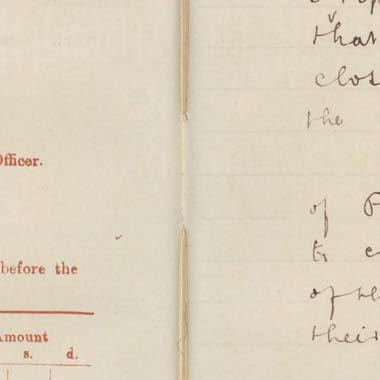 Officer.
before the
Amount
s. d.
that
the
of P
to
of th
their